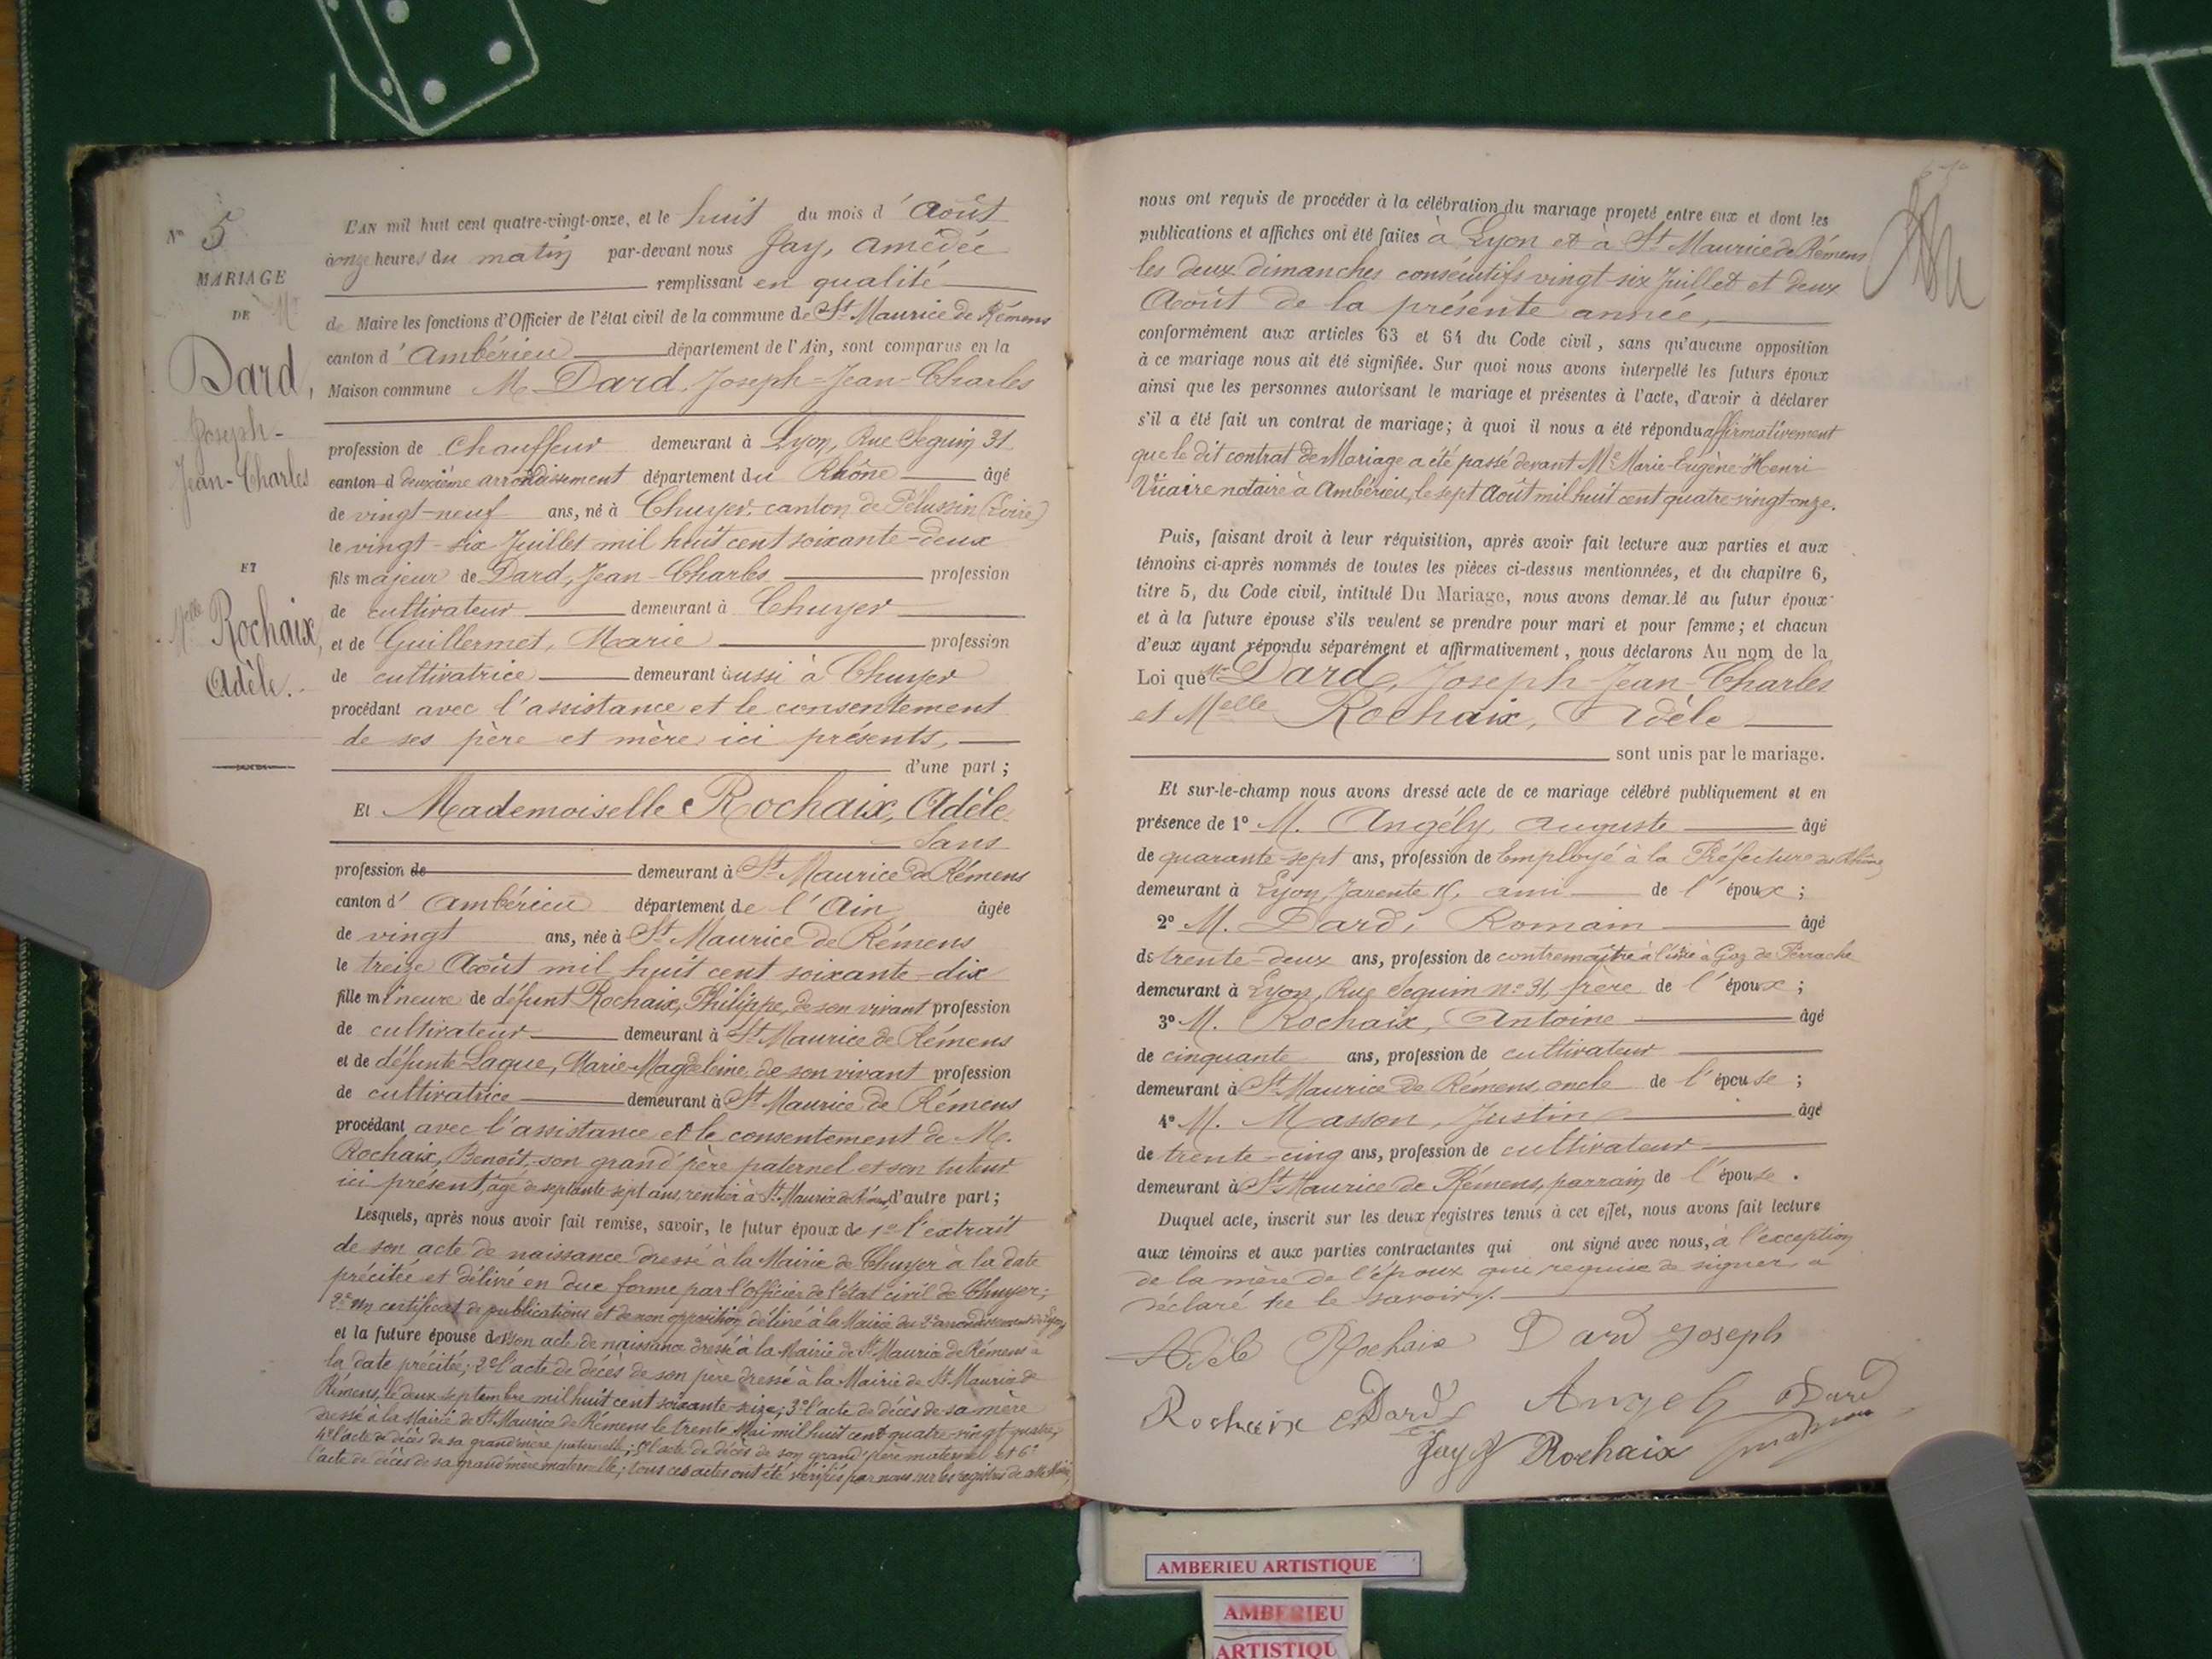 N° 5
MARIAGE
DE
Mr
Dard,
Joseph-
Jean-Charles
ET
Melle
Rochaix,
Adèle.
L'AN mil huit cent quatre-vingt-onze, et le huit du mois d'Août
à onze heures du matin par-devant nous Jay, Amédée
remplissant en qualité
de Maire les fonctions d'Officier de l'état civil de la commune de St Maurice de Rémens
canton d'Ambérieu département de l'Ain, sont comparus en la
Maison commune M. Dard, Joseph-Jean-Charles
profession de Chauffeur demeurant à Lyon, Rue Seguin 31
canton d deuxième arrondissement département du Rhône âgé
de vingt-neuf ans, né à Chuyer canton de Pélussin (Loire)
le vingt-six Juillet mil huit cent soixante-deux
fils majeur de Dard, Jean-Charles profession
de cultivateur demeurant à Chuyer
et de Guillermet, Marie profession
de cultivatrice demeurant aussi à Chuyer
procédant avec l'assistance et le consentement
de ses père et mère ici présents,
d'une part;
Et Mademoiselle Rochaix, Adèle
Sans
profession de demeurant à St Maurice de Rémens
canton d'Ambérieu département de l'Ain âgée
de vingt ans, née à St Maurice de Rémens
le treize Août mil huit cent soixante-dix
fille mineure de défunt Rochaix, Philippe, de son vivant profession
de cultivateur demeurant à St Maurice de Rémens
et de défunte Laque, Marie-Magdeleine, de son vivant profession
de cultivatrice demeurant à St Maurice de Rémens
procédant avec l'assistance et le consentement de M.
Rochaix, Benoît, son grand'père paternel et son tuteur
ici présent, âgé de septante sept ans, rentier à St Maurice de Rémens, d'autre part;
Lesquels, après nous avoir fait remise, savoir, le futur époux de 1° l'extrait
de son acte de naissance dressé à la Mairie de Chuyer à la date
précitée et délivré en due forme par l'officier de l'état civil de Chuyer;
2° un certificat de publications et de non opposition délivré à la Mairie du 2e arrondissement de Lyon
et la future épouse de son acte de naissance dressé à la Mairie de St Maurice de Rémens à
la date précitée; 2° l'acte de décès de son père dressé à la Mairie de St Maurice de
Rémens, le deux septembre mil huit cent soixante-seize; 3° l'acte de décès de sa mère
dressé à la Mairie de St Maurice de Rémens le trente Mai mil huit cent quatre-vingt-quatre;
4° l'acte de décès de sa grand'mère paternelle; 5° l'acte de décès de son grand'père maternel et 6°
l'acte de décès de sa grand'mère maternelle; tous ces actes ont été vérifiés par nous sur les registres de cette Mairie,
nous ont requis de procéder à la célébration du mariage projeté entre eux et dont les
publications et affiches ont été faites à Lyon et à St Maurice de Rémens
les deux dimanches consécutifs vingt-six Juillet et deux
Août de la présente année,
conformément aux articles 63 et 64 du Code civil, sans qu'aucune opposition
à ce mariage nous ait été signifiée. Sur quoi nous avons interpellé les futurs époux
ainsi que les personnes autorisant le mariage et présentes à l'acte, d'avoir à déclarer
s'il a été fait un contrat de mariage; à quoi il nous a été répondu affirmativement
que le dit contrat de Mariage a été passé devant Me Marie-Eugène-Henri
Vicaire notaire à Ambérieu, le sept Août mil huit cent quatre-vingt-onze.
Puis, faisant droit à leur réquisition, après avoir fait lecture aux parties et aux
témoins ci-après nommés de toutes les pièces ci-dessus mentionnées, et du chapitre 6,
titre 5, du Code civil, intitulé Du Mariage, nous avons demandé au futur époux
et à la future épouse s'ils veulent se prendre pour mari et pour femme; et chacun
d'eux ayant répondu séparément et affirmativement, nous déclarons Au nom de la
Loi que Mr Dard, Joseph-Jean-Charles
et Melle Rochaix, Adèle
sont unis par le mariage.
Et sur-le-champ nous avons dressé acte de ce mariage célébré publiquement et en
présence de 1° M. Angély, Auguste âgé
de quarante-sept ans, profession de Employé à la Préfecture du Rhône
demeurant à Lyon, Jarente 15, ami de l'époux;
2° M. Dard, Romain âgé
de trente-deux ans, profession de contremaître à l'usine à Gaz de Perrache
demeurant à Lyon, Rue Seguin n° 31, frère de l'époux;
3° M. Rochaix, Antoine âgé
de cinquante ans, profession de cultivateur
demeurant à St Maurice de Rémens, oncle de l'épouse;
4° M. Masson, Justin âgé
de trente-cinq ans, profession de cultivateur
demeurant à St Maurice de Rémens, parrain de l'épouse.
Duquel acte, inscrit sur les deux registres tenus à cet effet, nous avons fait lecture
aux témoins et aux parties contractantes qui ont signé avec nous, à l'exception
de la mère de l'époux que requise de signer a
déclaré ne le savoir.
Adèle Rochaix Dard Joseph
Rochaix Dard Angely Dard
Jay Rochaix masson
AMBERIEU ARTISTIQUE
AMBERIEU
ARTISTIQU